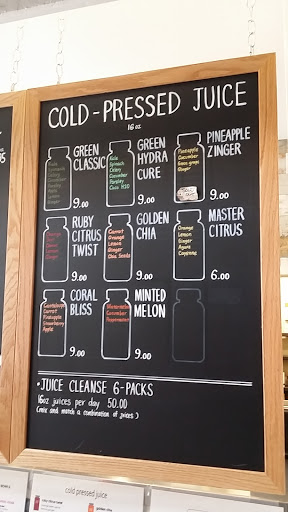 COLD-PRESSED JUICE
16 oz
GREEN
CLASSIC
Kale
Spinach
Celery
Parsley
Apple
Lemon
Ginger
9.00
GREEN
HYDRA
CURE
Kale
Spinach
Celery
Cucumber
Parsley
Coco H2O
9.00
PINEAPPLE
ZINGER
Pineapple
Cucumber
Ginger
9.00
RUBY
CITRUS
TWIST
Lemon
Ginger
9.00
GOLDEN
CHIA
Carrot
Orange
Lemon
Ginger
Chia Seeds
9.00
MASTER
CITRUS
Orange
Lemon
Ginger
Agave
Cayenne
6.00
CORAL
BLISS
Cantaloupe
Carrot
Pineapple
Strawberry
Apple
9.00
MINTED
MELON
Watermelon
Cucumber
Peppermint
9.00
• JUICE CLEANSE 6-PACKS
16oz juices per day 50.00
(mix and match a combination of juices)
cold pressed juice
cold pressed juice